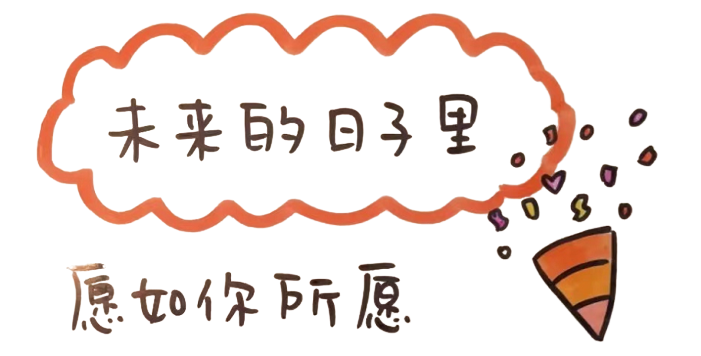 未来的日子里
愿如你所愿